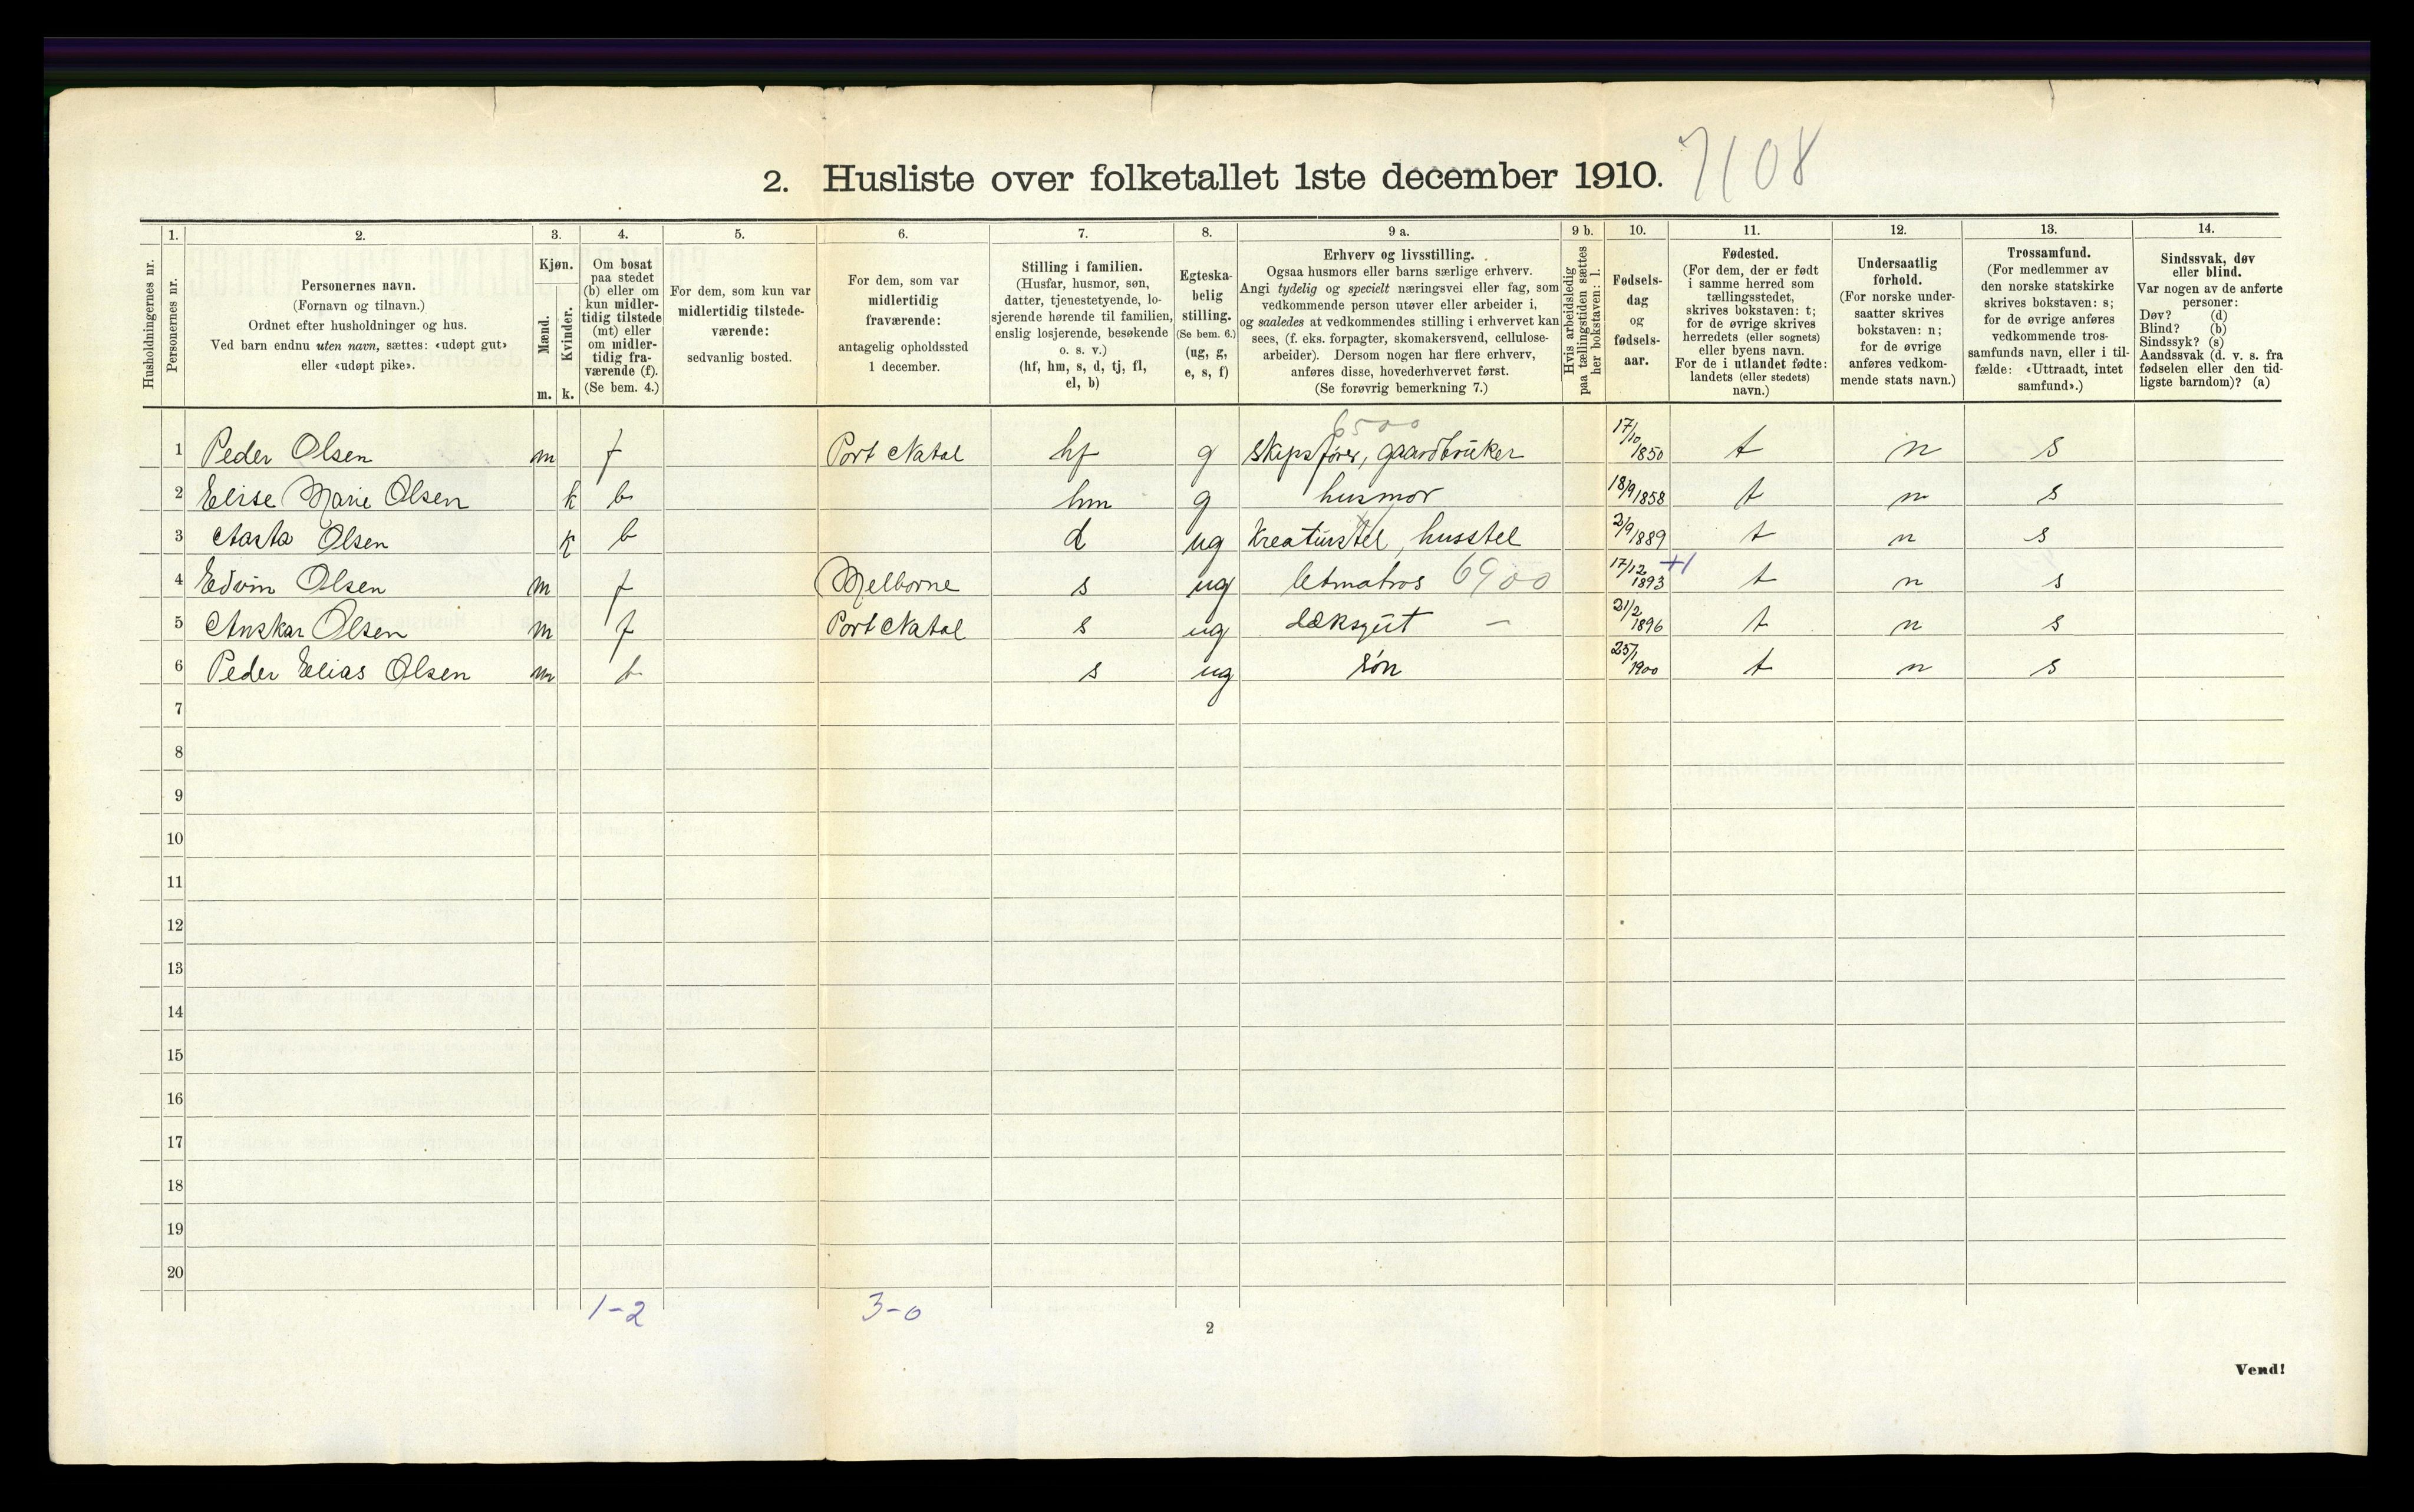 2. Husliste over folketallet 1ste december 1910.
7108
Husholdningernes nr.
1.
Personernes nr.
2.
Personernes navn.
(Fornavn og tilnavn.)
Ordnet efter husholdninger og hus.
Ved barn endnu uten navn, sættes: «udøpt gut»
eller «udøpt pike».
3.
Kjøn.
Mænd.
Kvinder.
m. k.
4.
Om bosat
paa stedet
(b) eller om
kun midler-
tidig tilstede
(mt) eller
om midler-
tidig fra-
værende (f).
(Se bem. 4.)
5.
For dem, som kun var
midlertidig tilstede-
værende:
sedvanlig bosted.
6.
For dem, som var
midlertidig
fraværende:
antagelig opholdssted
1 december.
7.
Stilling i familien.
(Husfar, husmor, søn,
datter, tjenestetyende, lo-
sjerende hørende til familien,
enslig losjerende, besøkende
o. s. v.)
(hf, hm, s, d, tj, fl,
el, b)
8.
Egteska-
belig
stilling.
(Se bem. 6.)
(ug, g,
e, s, f)
9 a.
Erhverv og livsstilling.
Ogsaa husmors eller barns særlige erhverv.
Angi tydelig og specielt næringsvei eller fag, som
vedkommende person utøver eller arbeider i,
og saaledes at vedkommendes stilling i erhvervet kan
sees, (f. eks. forpagter, skomakersvend, cellulose-
arbeider). Dersom nogen har flere erhverv,
anføres disse, hovederhvervet først.
(Se forøvrig bemerkning 7.)
9 b.
Hvis arbeidsledig
paa tællingstiden sættes
her bokstaven: l.
10.
Fødsels-
dag
og
fødsels-
aar.
11.
Fødested.
(For dem, der er født
i samme herred som
tællingsstedet,
skrives bokstaven: t;
for de øvrige skrives
herredets (eller sognets)
eller byens navn.
For de i utlandet fødte:
landets (eller stedets)
navn.)
12.
Undersaatlig
forhold.
(For norske under-
saatter skrives
bokstaven: n;
for de øvrige
anføres vedkom-
mende stats navn.)
13.
Trossamfund.
(For medlemmer av
den norske statskirke
skrives bokstaven: s;
for de øvrige anføres
vedkommende tros-
samfunds navn, eller i til-
fælde: «Uttraadt, intet
samfund».)
14.
Sindssvak, døv
eller blind.
Var nogen av de anførte
personer:
Døv? (d)
Blind? (b)
Sindssyk? (s)
Aandssvak (d. v. s. fra
fødselen eller den tid-
ligste barndom)? (a)
6500
1 Peder Olsen m f Port Natal hf g skipsfører, gaardbruker 17/10 1850 t n s
2 Elise Marie Olsen k b hm g husmor 18/9 1858 t n s
3 Aasta Olsen k b d ug Kreaturstel, husstel 2/9 1889 t n s
4 Edvin Olsen m f Melborne s ug letmatros 6900 17/12 1893 +1 t n s
5 Anskar Olsen m f Port Natal s ug dæksgut – 21/2 1896 t n s
6 Peder Elias Olsen m b s ug søn 25/1 1900 t n s
7
8
9
10
11
12
13
14
15
16
17
18
19
20
1-2 3-0
2
Vend!